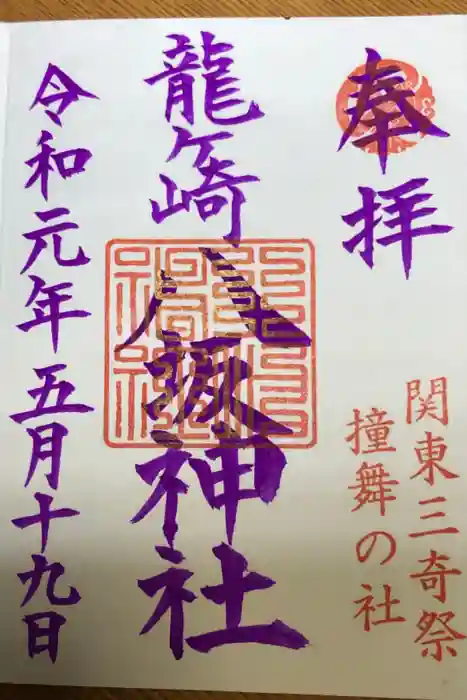 奉拝
関東三奇祭
撞舞の社
龍ヶ崎
八坂神社
令和元年五月十九日